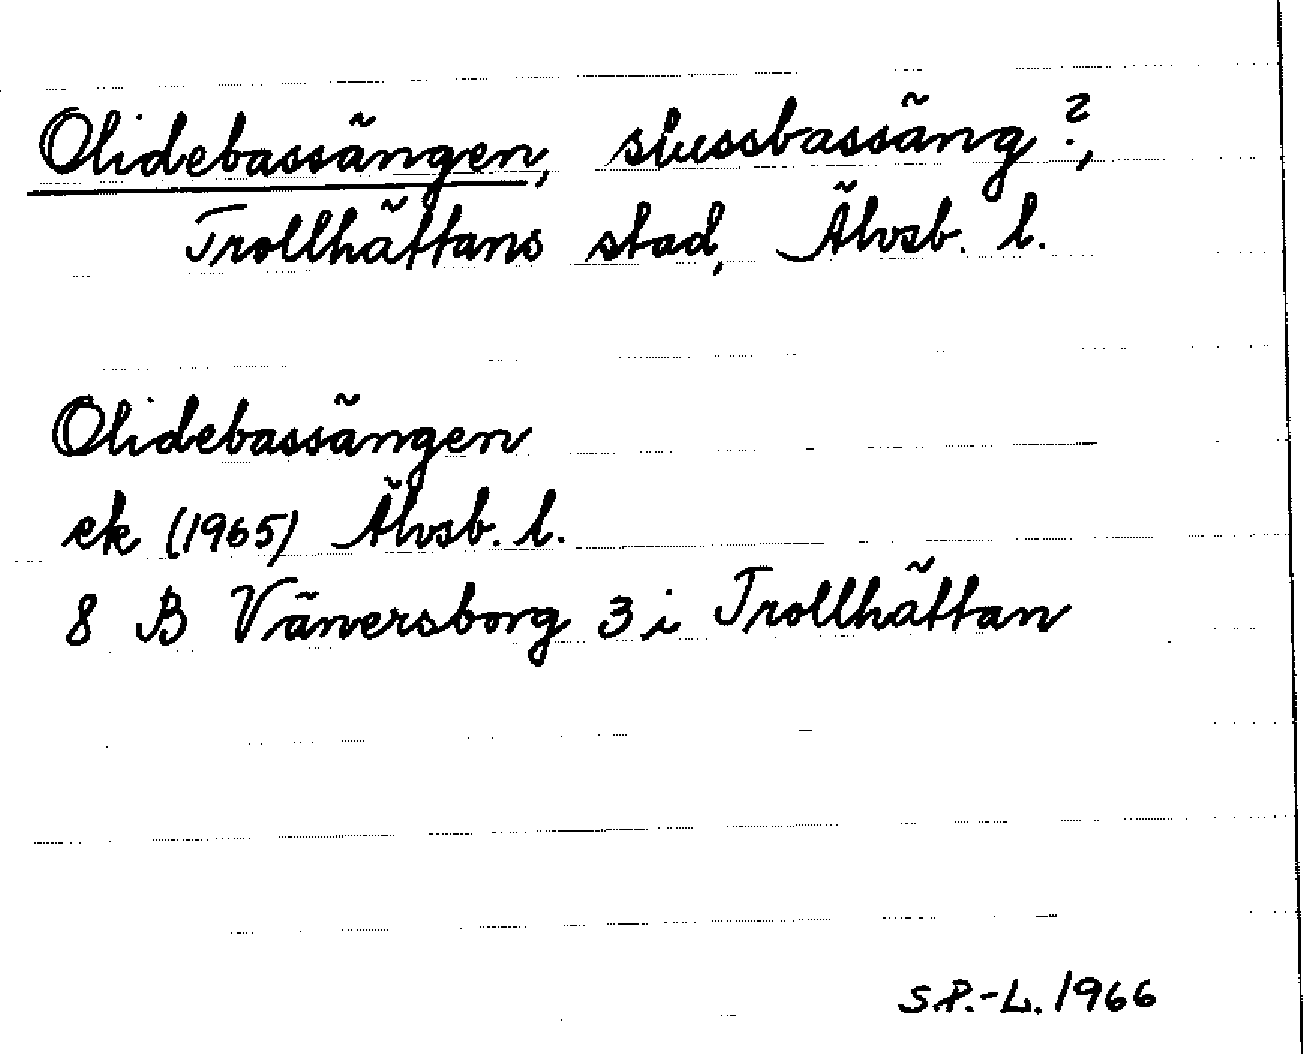 Olidebassängen, slussbassäng?,
Trollhättans stad, Älvsb. l.
Olidebassängen
ek (1965) Älvsb. l.
8 B Vänersborg 3 i Trollhättan
S.P.-L. 1966